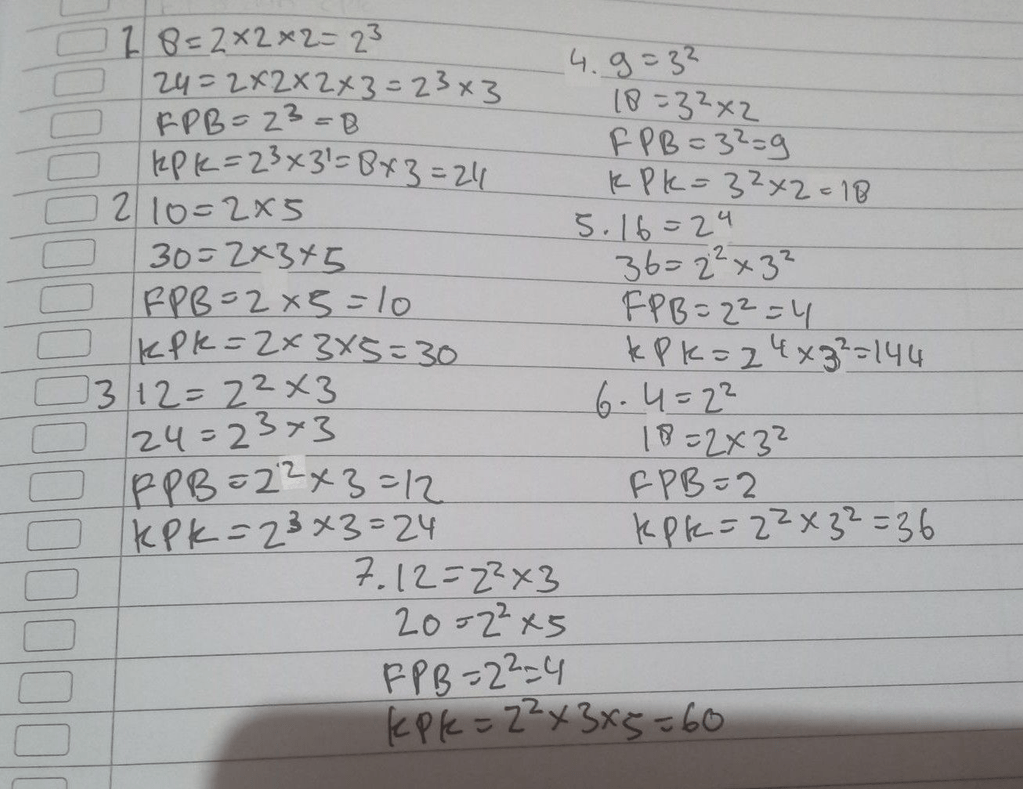 1 8=2×2×2=2³
24=2×2×2×3=2³×3
FPB=2³=8
KPK=2³×3¹=8×3=24
2 10=2×5
30=2×3×5
FPB=2×5=10
KPK=2×3×5=30
3 12=2²×3
24=2³×3
FPB=2²×3=12
KPK=2³×3=24
4. 9=3²
18=3²×2
FPB=3²=9
KPK=3²×2=18
5. 16=2⁴
36=2²×3²
FPB=2²=4
KPK=2⁴×3²=144
6. 4=2²
18=2×3²
FPB=2
KPK=2²×3²=36
7. 12=2²×3
20=2²×5
FPB=2²=4
KPK=2²×3×5=60